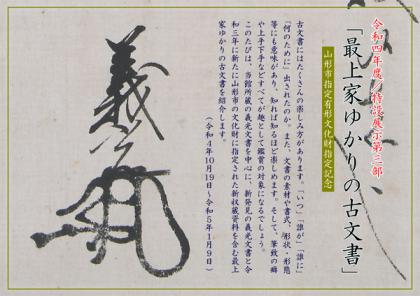 令和四年度 特設展示第三部
「最上家ゆかりの古文書」
山形市指定有形文化財指定記念
古文書にはたくさんの楽しみ方があります。「いつ」「誰が」「誰に」
「何のために」出されたのか。また、文書の素材や書式、形状・形態
等にも意味があり、知れば知るほど楽しめます。そして、筆致の癖
や上手下手などすべてが趣として鑑賞の対象になるでしょう。
このたびは、当館所蔵の義光文書を中心に、新発見の義光文書と令
和三年に新たに山形市の文化財に指定された新収蔵資料を含む最上
家ゆかりの古文書を紹介します。
(令和4年10月19日~令和5年1月9日)
義